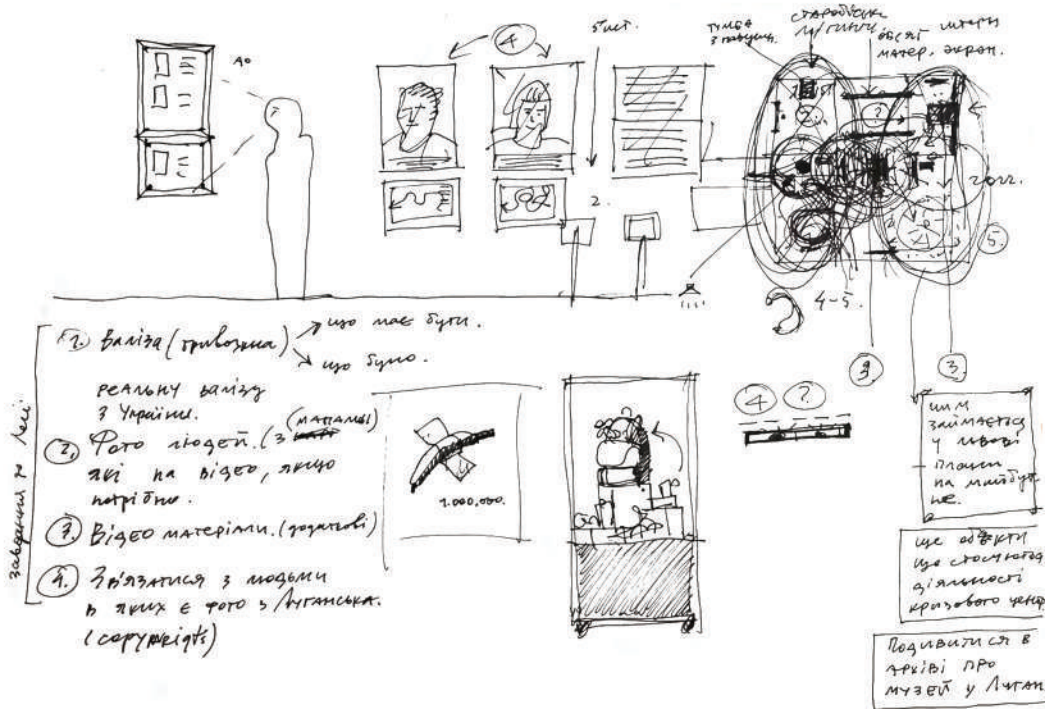 до
④
5 лист.
тумба
обсяг
матер. экран.
2.
?
2022.
5.
4-5.
3.
④ ?
завдання до Лесі
1. Валіза (тривожна)
що має бути.
що було.
реальну валізу
з України.
2. Фото людей. (з мапами)
які на відео, якщо
потрібно.
3. Відео матеріали. (додаткові)
4. Зв'язатися з людьми
в яких є фото з Луганська.
(copyrights)
1.000,000.
чим
займається
у Львові
— плани
на майбут
нє.
ще об'єкти
що стосуються
діяльності
кризового центр
Подивитися в
архіві про
музей у Луган